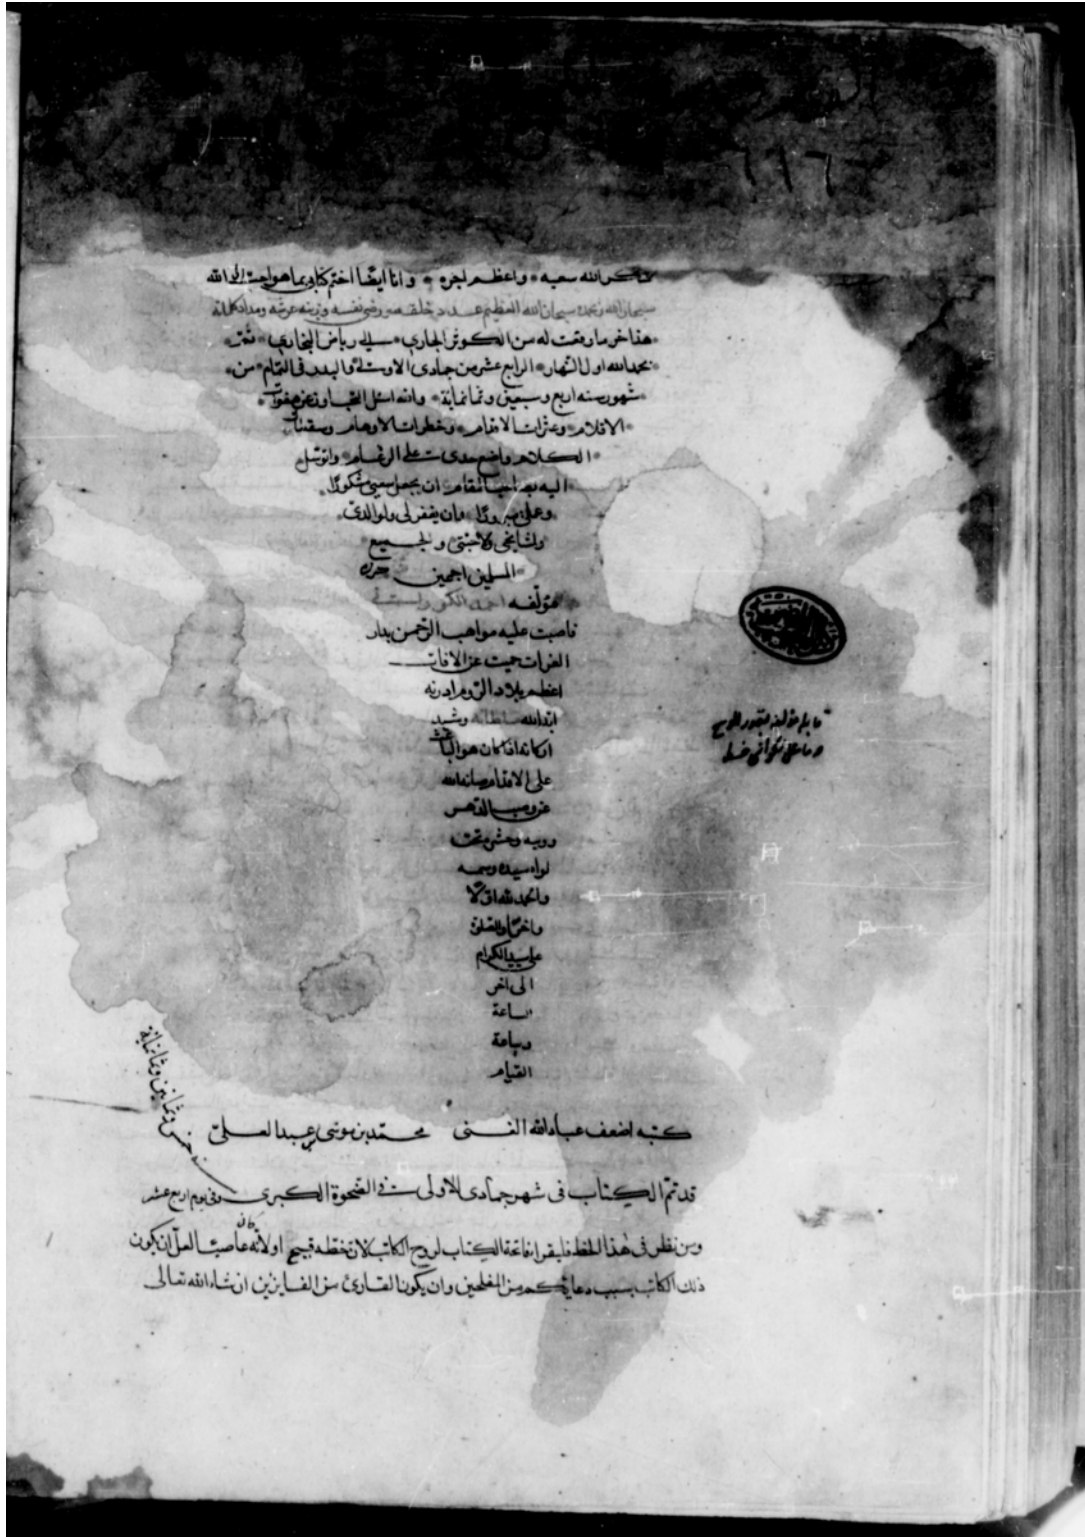 ٦١٦
شكر الله سعيه واعظم اجره وانا ايضًا اختم كتابى بما هو احب الى الله
سبحان الله وبحمده سبحان الله العظيم عدد خلقه ورضى نفسه وزنة عرشه ومداد كلماته
هذا اخر ما وفقت له من الكوثر الجارى الى رياض البخارى تم
بحمد الله اول النهار الرابع عشر من جمادى الاولى والبدر فى التمام من
شهور سنه اربع وسبعين وثمانماية والله اسئل التجاوز عن هفوات
الاقلام وعثرات الاقدام وخطرات الاوهام وسقطات
الكلام واضع خدى على الرغام واتوسل
اليه ان يجعل سعيى مشكورًا
وعملى مبرورًا وان يغفر لى ولوالدى
ولمشايخى ولاحبتى ولجميع
المسلمين اجمعين حرره
مؤلفه احمد الكورانى
فاضت عليه مواهب الرحمن بدار
الغزات حميت عن الافات
اعظم بلاد الروم ادرنه
ابد الله سلطانه وشيد
اركانه اذ كان هو الباعث
على الاقدام صانه الله
عن نوب الدهر
تحت
لواء سيده
والحمد لله اولًا
واخرًا والصلوة
على سيد الكرام
الى اخر
الساعة
وساعة
القيام
كتبه اضعف عباد الله الغنى محمد بن موسى بن عبد العلى
قد تم الكتاب فى شهر جمادى الاولى فى الضحوة الكبرى وفى يوم اربع عشر
سنه خمس وثمانين وثمانماية
ومن نظر فى هذا الخط فليقرا فاتحة الكتاب لروح الكاتب لان خطه قبيح اولانه كان عاصيًا لعل ان يكون
ذلك الكاتب بسبب دعائكم من المفلحين وان يكون القارئ من الفايزين ان شاء الله تعالى